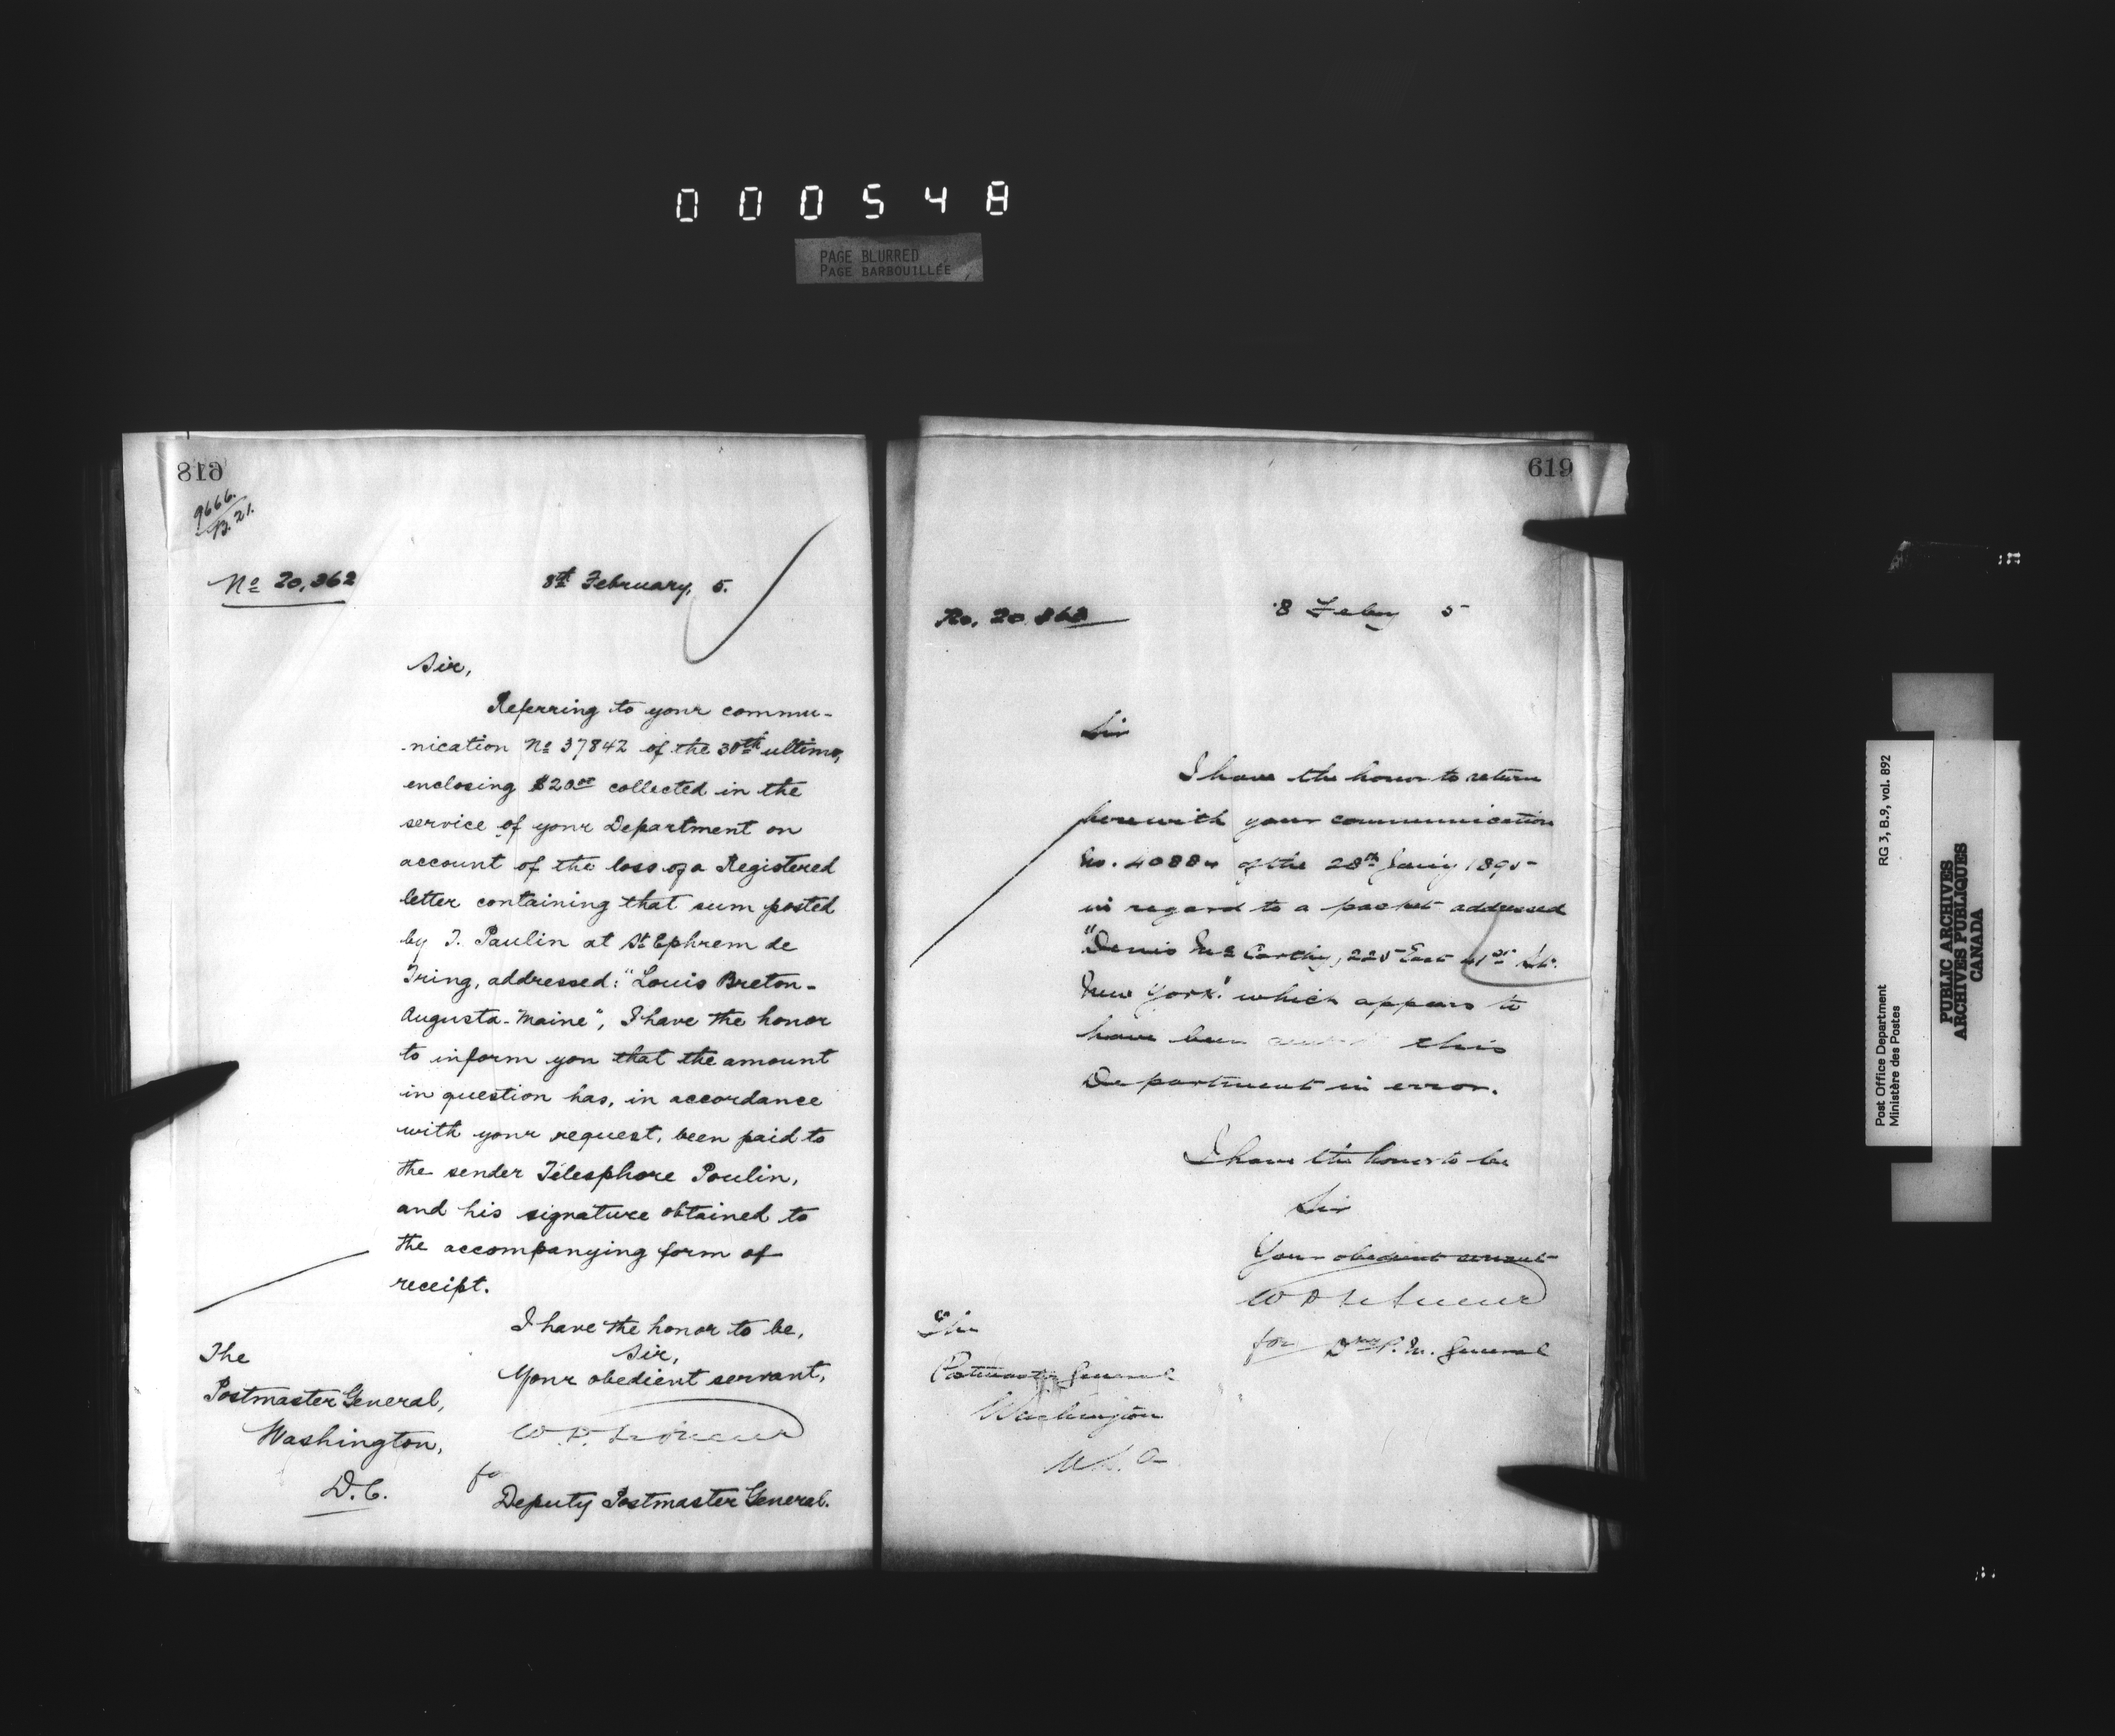 000548
PAGE BLURRED
PAGE BARBOUILLÉE
618
9666.
B. 21.
No 20,362
8th February, 5.
Sir,
Referring to your commu-
nication No 37842 of the 30th ultimo,
enclosing $20 00 collected in the
service of your Department on
account of the loss of a Registered
letter containing that sum posted
by T. Paulin at St Ephrem de
Tring, addressed: "Louis Breton-
Augusta-Maine", I have the honor
to inform you that the amount
in question has, in accordance
with your request, been paid to
the sender Télesphore Poulin,
and his signature obtained to
the accompanying form of
receipt.
I have the honor to be,
Sir,
Your obedient servant,
for
Deputy Postmaster General.
The
Postmaster General,
Washington,
D.C.
619
No. 20 363
8 Feby 5
Sir
I have the honor to return
herewith your communication
No. 40884 of the 28th Jany 1895
in regard to a packet addressed
"Denis McCarthy, 225 East 41st St.
New York." which appears to
have been this
Department in error.
I have the honor to be
Sir
Your obedient servant
for Dy P. M. General
The
Postmaster General
Washington
U.S.A
Post Office Department
Ministère des Postes
RG 3, B.9, vol. 892
PUBLIC ARCHIVES
ARCHIVES PUBLIQUES
CANADA